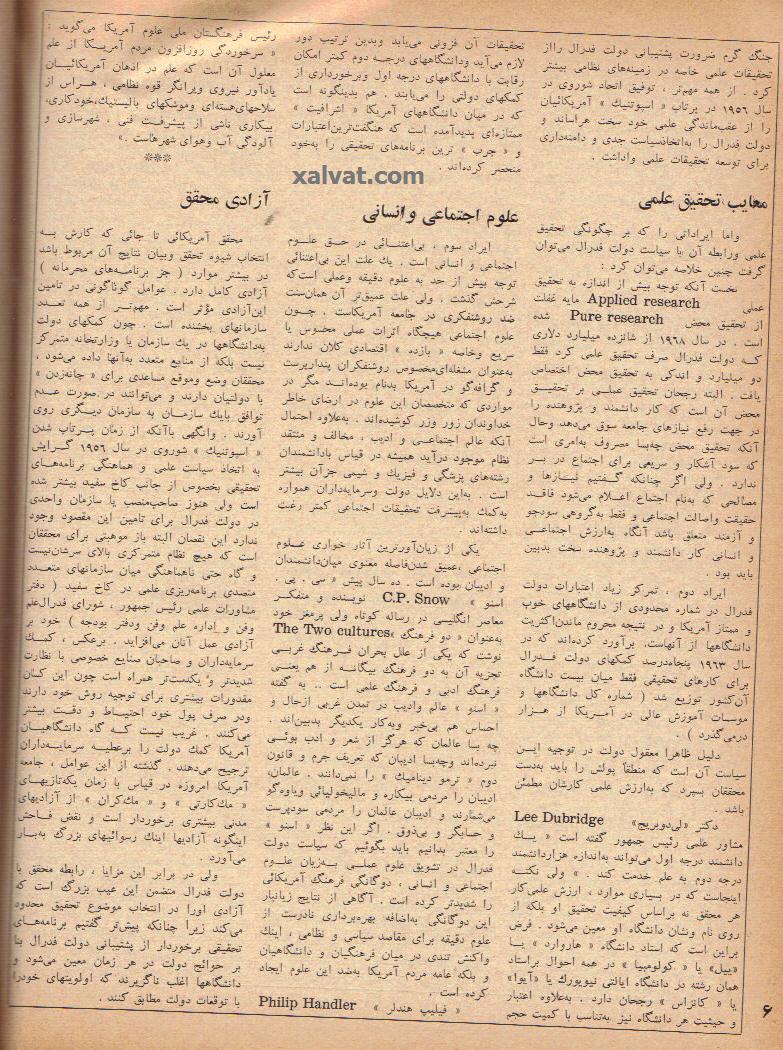 جنگ گرم ضرورت پشتیبانی دولت فدرال رااز
تحقیقات علمی خاصه در زمینه‌های نظامی بیشتر
کرد . از همه مهم‌تر ، توفیق اتحاد شوروی در
سال ۱۹۵۶ در پرتاب « اسپوتنیك » آمریکائیان
را از عقب‌ماندگی علمی خود سخت هراساند و
دولت فدرال را به‌اتخاذسیاست جدی و دامنه‌داری
برای توسعه تحقیقات علمی واداشت .
معایب تحقیق علمی
واما ایراداتی را که بر چگونگی تحقیق
علمی ورابطه آن با سیاست دولت فدرال می‌توان
گرفت چنین خلاصه می‌توان کرد :
نخست آنکه توجه بیش از اندازه به تحقیق
عملی Applied research مایه غفلت
از تحقیق محض Pure research شده
است . در سال ۱۹۶۸ از شانزده میلیارد دلاری
که دولت فدرال صرف تحقیق علمی کرد فقط
دو میلیارد و اندکی به تحقیق محض اختصاص
یافت . البته رجحان تحقیق عملی بر تحقیق
محض آن است که کار دانشمند و پژوهنده را
در جهت رفع نیازهای جامعه سوق می‌دهد وحال
آنکه تحقیق محض چه‌بسا مصروف به‌امری است
که سود آشکار و سریعی برای اجتماع در بر
ندارد . ولی اگر چنانکه گفتیم نیازها و
مصالحی که به‌نام اجتماع اعلام می‌شود فاقد
حقیقت واصالت اجتماعی و فقط به‌گروهی سودجو
و آزمند متعلق باشد آنگاه به‌ارزش اجتماعی
و انسانی کار دانشمند و پژوهنده سخت بدبین
باید بود .
ایراد دوم ، تمرکز زیاد اعتبارات دولت
فدرال در شماره محدودی از دانشگاههای خوب
و ممتاز آمریکا و در نتیجه محروم ماندن‌اکثریت
دانشگاهها از آنهاست. برآورد کرده‌اند که در
سال ۱۹۶۳ پنجاه‌درصد کمکهای دولت فدرال
برای کارهای تحقیقی فقط میان بیست دانشگاه
آن‌کشور توزیع شد ( شماره کل دانشگاهها و
موسسات آموزش عالی در آمریکا از هزار
درمی‌گذرد ) .
دلیل ظاهرا معقول دولت در توجیه این
سیاست آن است که منطقاً پولش را باید به‌دست
محققان بسپرد که به‌ارزش علمی کارشان مطمئن
باشد .
دکتر «لی‌دوبریج» Lee Dubridge
مشاور علمی رئیس جمهور گفته است « یك
دانشمند درجه اول می‌تواند به‌اندازه هزاردانشمند
درجه دوم به علم خدمت کند . » ولی نکته
اینجاست که در بسیاری موارد ، ارزش علمی‌کار
هر محقق نه براساس کیفیت تحقیق او بلکه از
روی نام ونشان دانشگاه او معین می‌شود . فرض
براین است که استاد دانشگاه « هاروارد » یا
«ییل» یا « کولومبیا » در همه احوال براستاد
همان رشته در دانشگاه ایالتی نیویورك یا «آیوا»
یا « کانزاس » رجحان دارد . به‌علاوه اعتبار
و حیثیت هر دانشگاه نیز به‌تناسب با کمیت حجم
تحقیقات آن فزونی می‌یابد وبدین ترتیب دور
لازم می‌آید ودانشگاههای درجه دوم کمتر امکان
رقابت با دانشگاههای درجه اول وبرخورداری از
کمکهای دولتی را می‌یابند . هم بدینگونه است
که در میان دانشگاههای آمریکا « اشرافیت »
ممتازه‌ای پدیدآمده است که هنگفت‌ترین‌اعتبارات
و « چرب » ترین برنامه‌های تحقیقی را به‌خود
منحصر کرده‌اند .
xalvat.com
علوم اجتماعی وانسانی
ایراد سوم ، بی‌اعتنائی در حق علوم
اجتماعی و انسانی است . یك علت این بی‌اعتنائی
توجه بیش از حد به علوم دقیقه وعملی است‌که
شرحش گذشت . ولی علت عمیق‌تر آن همان‌سنت
ضد روشنفکری در جامعه آمریکاست . چون
علوم اجتماعی هیچگاه اثرات عملی محسوس یا
سریع وخاصه « بازده » اقتصادی کلان ندارند
به‌عنوان مشغله‌ای‌مخصوص روشنفکران پندارپرست
و گزافه‌گو در آمریکا بدنام بوده‌اند مگر در
مواردی که متخصصان این علوم در ارضای خاطر
خداوندان زور وزر کوشیده‌اند . به‌علاوه احتمال
آنکه عالم اجتماعی و ادیب ، مخالف و منتقد
نظام موجود درآید همیشه در قیاس بادانشمندان
رشته‌های پزشکی و فیزیك و شیمی جزآن بیشتر
است . به‌این دلایل دولت وسرمایه‌داران همواره
به‌کمك به‌پیشرفت تحقیقات اجتماعی کمتر رغبت
داشته‌اند .
یکی از زیان‌آورترین آثار خواری علوم
اجتماعی ،عمیق شدن‌فاصله معنوی میان‌دانشمندان
و ادیبان بوده است . ده سال پیش « سی . پی .
اسنو » C.P. Snow نویسنده و متفکر
معاصر انگلیسی در رساله کوتاه ولی پرمغز خود
به‌عنوان « دو فرهنگ »The Two cultures
نوشت که یکی از علل بحران فرهنگ غربی
تجزیه آن به دو فرهنگ بیگانه از هم یعنی
فرهنگ ادبی و فرهنگ علمی است .. به گفته
« اسنو » عالم وادیب در تمدن غربی ازحال و
احساس هم بی‌خبر وبه‌کار یکدیگر بدبین‌اند .
چه بسا عالمان که هرگز از شعر و ادب بوئی
نبرده‌اند وچه‌بسا ادیبان که تعریف جرم و قانون
دوم « ترمو دینامیك » را نمی‌دانند . عالمان،
ادیبان را مردمی بیکاره و مالیخولیائی ویاوه‌گو
می‌شمارند و ادیبان عالمان را مردمی سودپرست
و حسابگر و بی‌ذوق . اگر این نظر « اسنو »
را معتبر بدانیم باید بگوئیم که سیاست دولت
فدرال در تشویق علوم عملی به‌زیان علوم
اجتماعی و انسانی ، دوگانگی فرهنگ آمریکائی
را شدیدتر کرده است . آگاهی از نتایج زیانبار
این دوگانگی به‌اضافه بهره‌برداری نادرست از
علوم دقیقه برای مقاصد سیاسی و نظامی ، اینك
واکنش تندی در میان فرهنگیان و دانشگاهیان
و بلکه عامه مردم آمریکا به‌ضد این علوم ایجاد
کرده است .
« فیلیپ هندلر » Philip Handler
رئیس فرهنگستان ملی علوم آمریکا می‌گوید :
« سرخوردگی روزافزون مردم آمریکا از علم
معلول آن است که علم در اذهان آمریکائیان
یادآور نیروی ویرانگر قوه نظامی ، هراس از
سلاحهای‌هسته‌ای وموشکهای بالیستیك،خودکاری،
بیکاری ناشی از پیشرفت فنی ، شهرسازی و
آلودگی آب وهوای شهرهاست .»
***
آزادی محقق
محقق آمریکائی تا جائی که کارش به
انتخاب شیوه تحقق وبیان نتایج آن مربوط باشد
در بیشتر موارد ( جز برنامه‌های محرمانه )
آزادی کامل دارد . عوامل گوناگونی در تامین
این‌آزادی مؤثر است . مهم‌تر از همه تعدد
سازمانهای بخشنده است . چون کمکهای دولت
به‌دانشگاهها در یك سازمان یا وزارتخانه متمرکز
نیست بلکه از منابع متعدد به‌آنها داده می‌شود ،
محققان وضع وموقع مساعدی برای « چانه‌زدن »
با دولتیان دارند و می‌توانند در صورت عدم
توافق بایك سازمان به سازمان دیگری روی
آورند . وانگهی باآنکه از زمان پرتاب شدن
« اسپوتنیك » شوروی در سال ۱۹۵۶ گرایش
به اتخاذ سیاست علمی و هماهنگی برنامه‌های
تحقیقی بخصوص از جانب کاخ سفید بیشتر شده
است ولی هنوز صاحب‌منصب یا سازمان واحدی
در دولت فدرال برای تامین این مقصود وجود
ندارد این نقصان البته باز موهبتی برای محققان
است که هیچ نظام متمرکزی بالای سرشان‌نیست
و گاه حتی ناهماهنگی میان سازمانهای متعدد
متصدی برنامه‌ریزی علمی در کاخ سفید ( دفتر
مشاورات علمی رئیس جمهور ، شورای فدرال‌علم
وفن و اداره علم وفن ودفتر بودجه ) خود بر
آزادی عمل آنان می‌افزاید . برعکس ، کمك
سرمایه‌داران و صاحبان صنایع خصوصی با نظارت
شدیدتر و یکدست‌تر همراه است چون این کسان
مقدورات بیشتری برای توجیه روش خود دارند
ودر صرف پول خود احتیاط و دقت بیشتر
می‌کنند . غریب نیست که گاه دانشگاهیان
آمریکا کمك دولت را برعطیه سرمایه‌داران
ترجیح می‌دهند . گذشته از این عوامل ، جامعه
آمریکا امروزه در قیاس با زمان یکه‌تازیهای
« مك‌کارتی » و « مك‌کران » از آزادیهای
مدنی بیشتری برخوردار است و نقض فاحش
اینگونه آزادیها اینك رسوائیهای بزرگ به‌بار
می‌آورد .
ولی در برابر این مزایا ، رابطه محقق با
دولت فدرال متضمن این عیب بزرگ است که
آزادی اورا در انتخاب موضوع تحقیق محدود
می‌کند زیرا چنانکه پیش‌تر گفتیم برنامه‌های
تحقیقی برخوردار از پشتیبانی دولت فدرال بنا
بر حوائج دولت در هر زمان معین می‌شود و
دانشگاهها اغلب ناگزیرند که اولویتهای خودرا
با توقعات دولت مطابق کنند .
۶